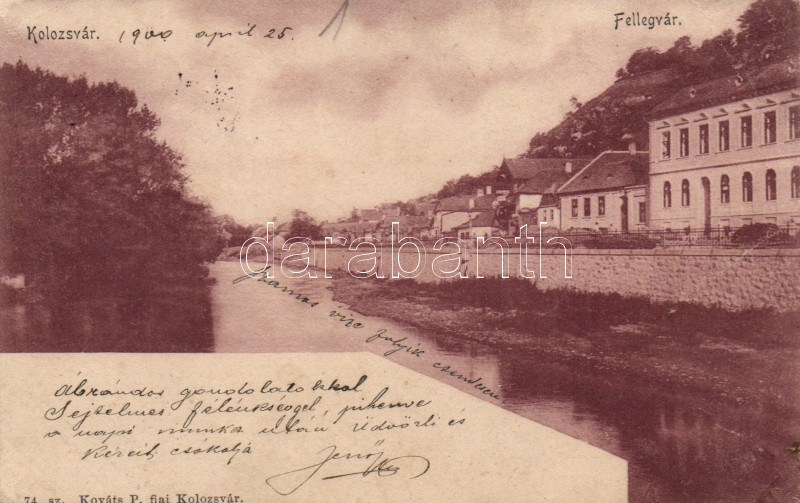 Kolozsvár. 1900 april 25.
Fellegvár.
darabanth
Szamos vize folyik csendesen
Ábrándos gondolatokkal
Sejtelmes félénkséggel, pihenve
a napi munka után üdvözli és
kezeit csókolja
Jenő
74. sz. Kováts P. fiai Kolozsvár.